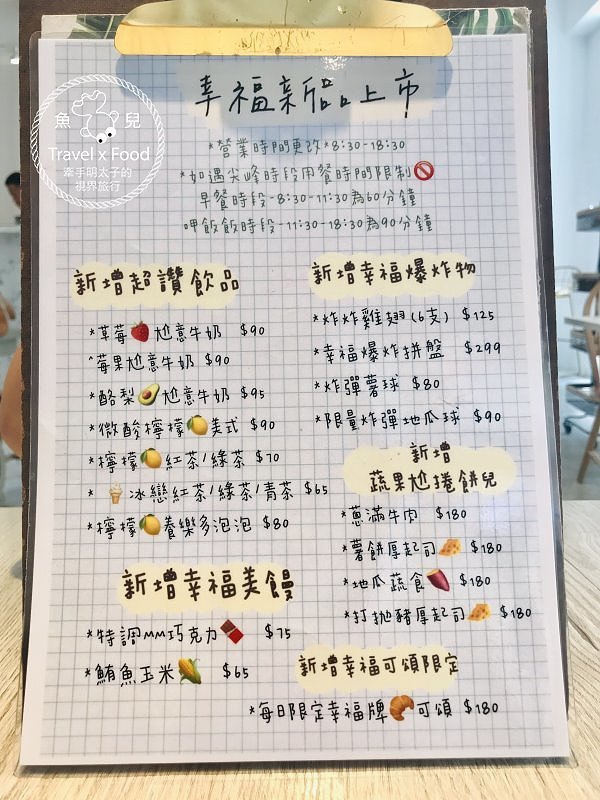 幸福新品上市
*營業時間更改*8:30-18:30
*如遇尖峰時段用餐時間限制🚫
早餐時段-8:30-11:30為60分鐘
呷飯飯時段-11:30-18:30為90分鐘
魚兒
Travel x Food
牽手明太子的
視界旅行
新增超讚飲品
*草莓🍓尬意牛奶 $90
*莓果尬意牛奶 $90
*酪梨🥑尬意牛奶 $95
*微酸檸檬🍋美式 $90
*檸檬🍋紅茶/綠茶 $70
*🍦冰戀紅茶/綠茶/青茶 $65
*檸檬🍋養樂多泡泡 $80
新增幸福美饅
*特調MM巧克力🍫 $75
*鮪魚玉米🌽 $65
新增幸福爆炸物
*炸炸雞翅(6支) $125
*幸福爆炸拼盤 $299
*炸彈薯球 $80
*限量炸彈地瓜球 $90
新增
蔬果尬捲餅兒
*蔥滿牛肉 $180
*薯餅厚起司🧀 $180
*地瓜蔬食🍠 $180
*打拋豬厚起司🧀 $180
新增幸福可頌限定
*每日限定幸福牌🥐可頌 $180